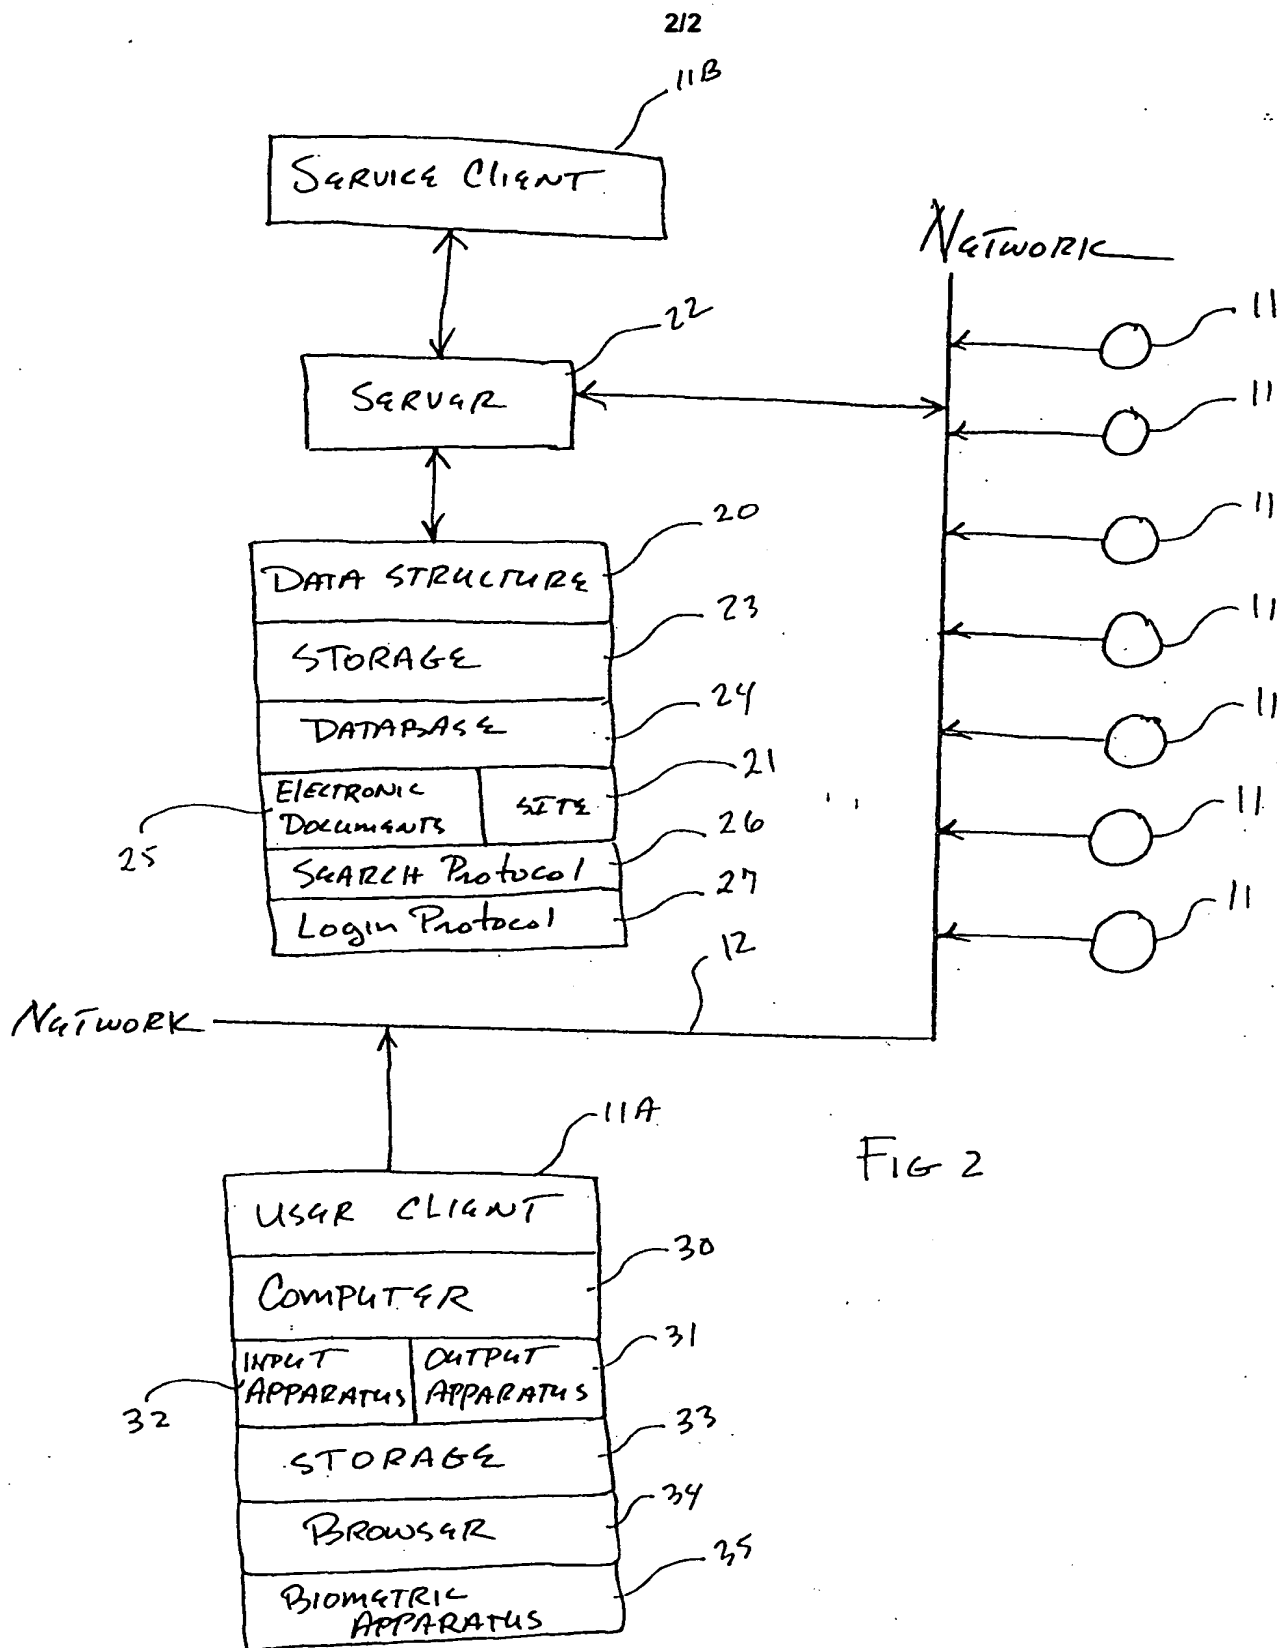 2/2
11B
SERVICE CLIENT
NETWORK
11
22
SERVER
11
11
20
DATA STRUCTURE
23
STORAGE
11
24
DATABASE
11
21
ELECTRONIC
DOCUMENTS
SITE
11
25
26
SEARCH Protocol
27
Login Protocol
11
12
NETWORK
11A
FIG 2
USER CLIENT
30
COMPUTER
31
INPUT
APPARATUS
OUTPUT
APPARATUS
32
33
STORAGE
34
BROWSER
35
BIOMETRIC
APPARATUS